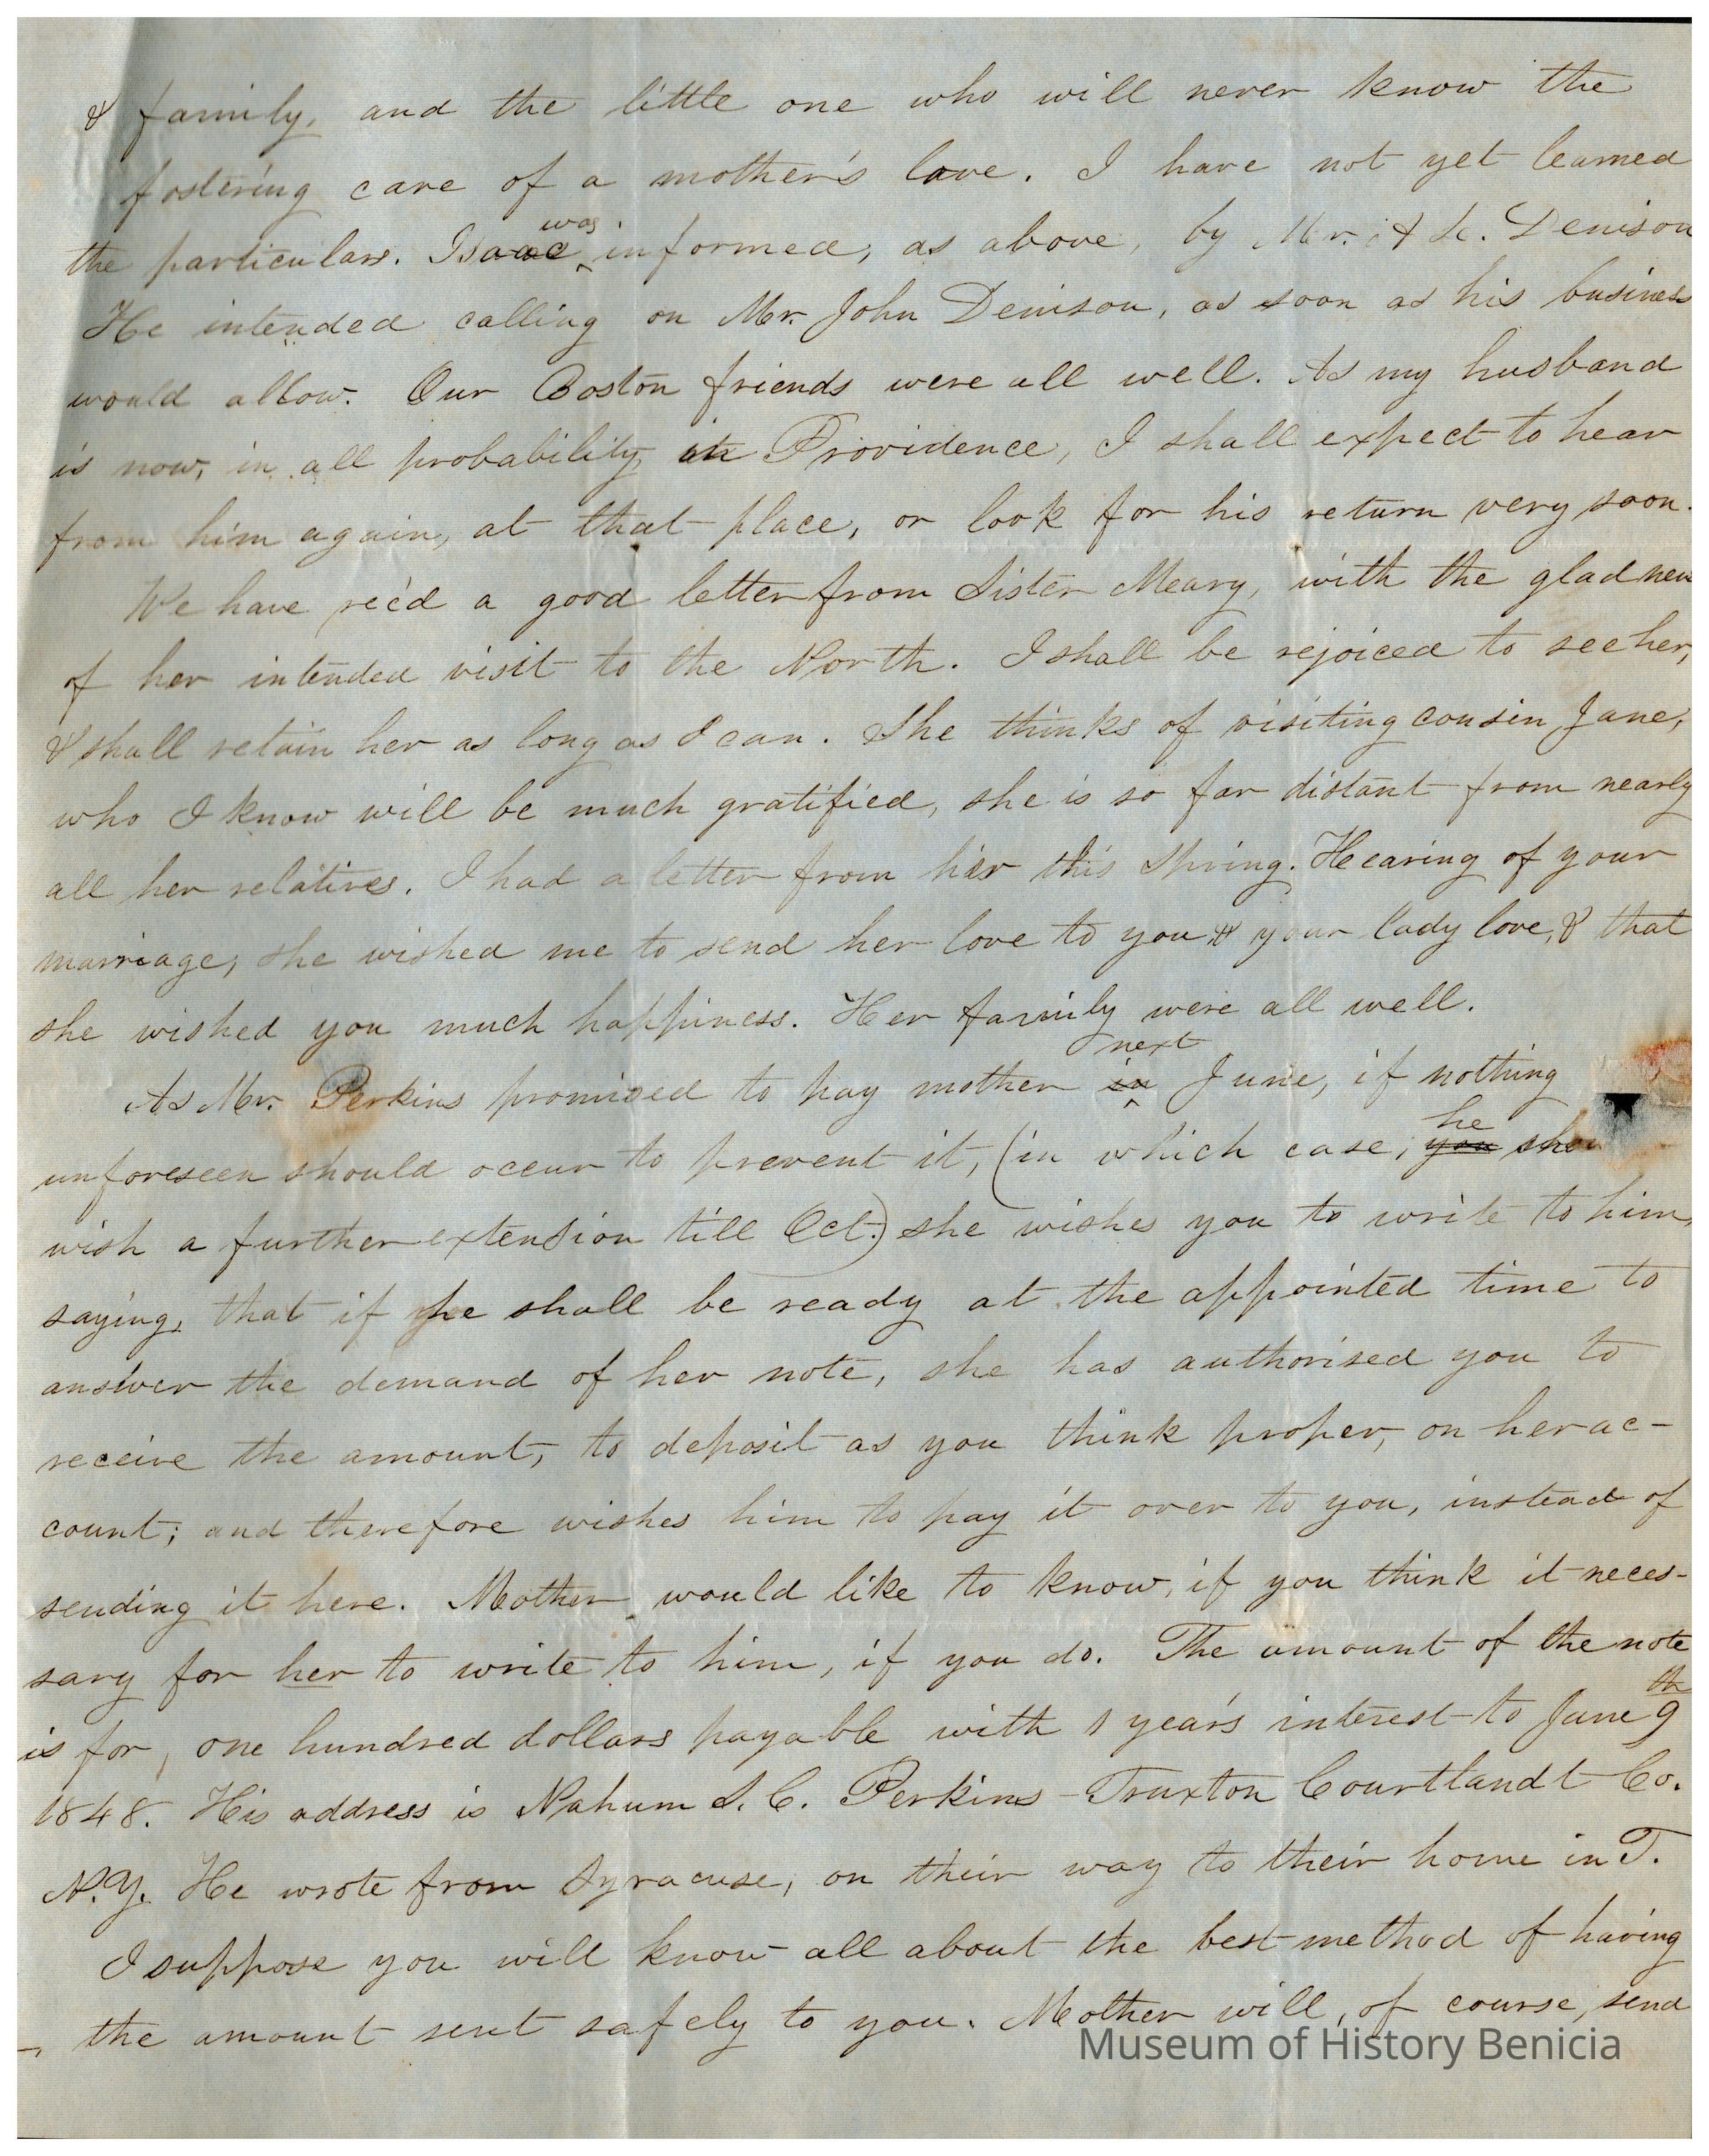 & family, and the little one who will never know the
fostering care of a mother's love. I have not yet learned
the particulars. Isaac was informed, as above, by Mr. Denison
He intended calling on Mr. John Denison, as soon as his business
would allow. Our Boston friends were all well. As my husband
is now, in all probability, in Providence, I shall expect to hear
from him again, at that place, or look for his return very soon.
We have rec'd a good letter from Sister Meary, with the glad news
of her intended visit to the North. I shall be rejoiced to see her,
& shall retain her as long as I can. She thinks of visiting cousin Jane,
who I know will be much gratified, she is so far distant from nearly
all her relatives. I had a letter from her this Spring. Hearing of your
marriage, she wished me to send her love to you & your lady love, & that
she wished you much happiness. Her family were all well.
As Mr. Perkins promised to pay mother in next June, if nothing
unforeseen should occur to prevent it, (in which case, you he shou
wish a further extension till Oct.) she wishes you to write to him,
saying, that if he shall be ready at the appointed time to
answer the demand of her note, she has authorised you to
receive the amount, to deposit as you think proper, on her ac-
count; and therefore wishes him to pay it over to you, instead of
sending it here. Mother would like to know, if you think it neces-
sary for her to write to him, if you do. The amount of the note
is for, one hundred dollars payable with 1 year's interest to June 9th
1848. His address is Nahum S. C. Perkins - Truxton Courtlandt Co.
N.Y. He wrote from Syracuse, on their way to their home in T.
I suppose you will know all about the best method of having
the amount sent safely to you. Mother will, of course, send
Museum of History Benicia